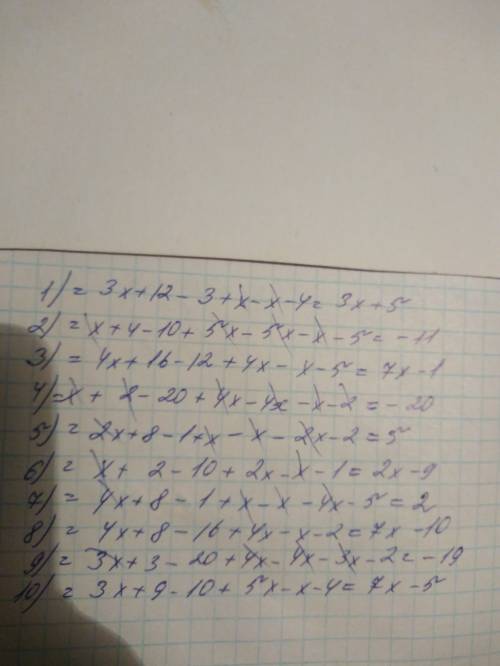 1) = 3x+12-3+x-x-4= 3x+5
2) = x+4-10+5x-5x-x-5=-11
3) = 4x+16-12+4x-x-5=7x-1
4) =x+2-20+4x-4x-x-2=-20
5) = 2x+8-1+x-x-2x-2=5
6) = x+2-10+2x-x-1=2x-9
7) = 4x+8-1+x-x-4x-5=2
8) = 4x+8-16+4x-x-2=7x-10
9) = 3x+3-20+4x-4x-3x-2=-19
10) = 3x+9-10+5x-x-4=7x-5